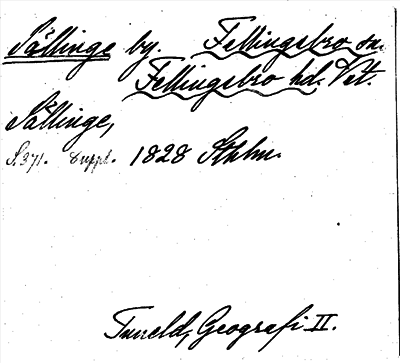 Sällinge by. Fellingsbro sn.
Fellingsbro hd. Vst.
Sällinge,
S. 371. Suppl. 1828 Sthlm.
Tuneld, Geografi II.